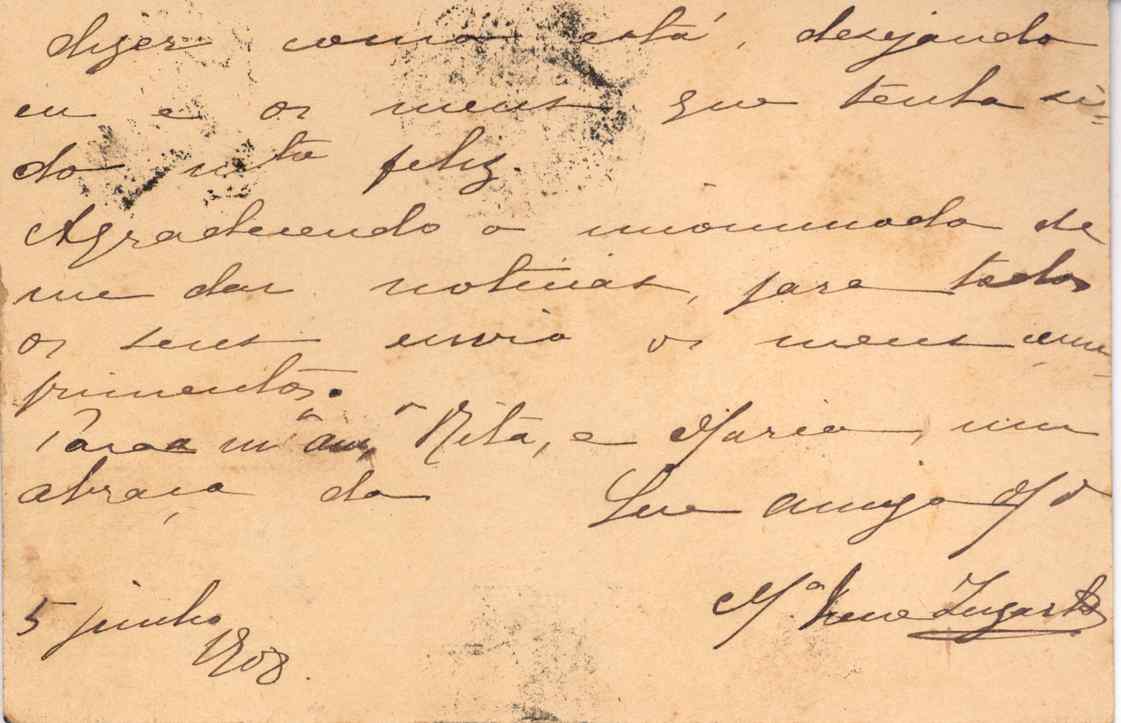 dizer como está, desejando
eu e os meus que tenha si-
do mto feliz.
Agradecendo o incommodo de
me dar noticias, para todos
os seus envio os meus cum-
primentos.
Para a mª Rita, e Maria, um
abraço da Sua amiga
Mª Irene
5 junho
1908.